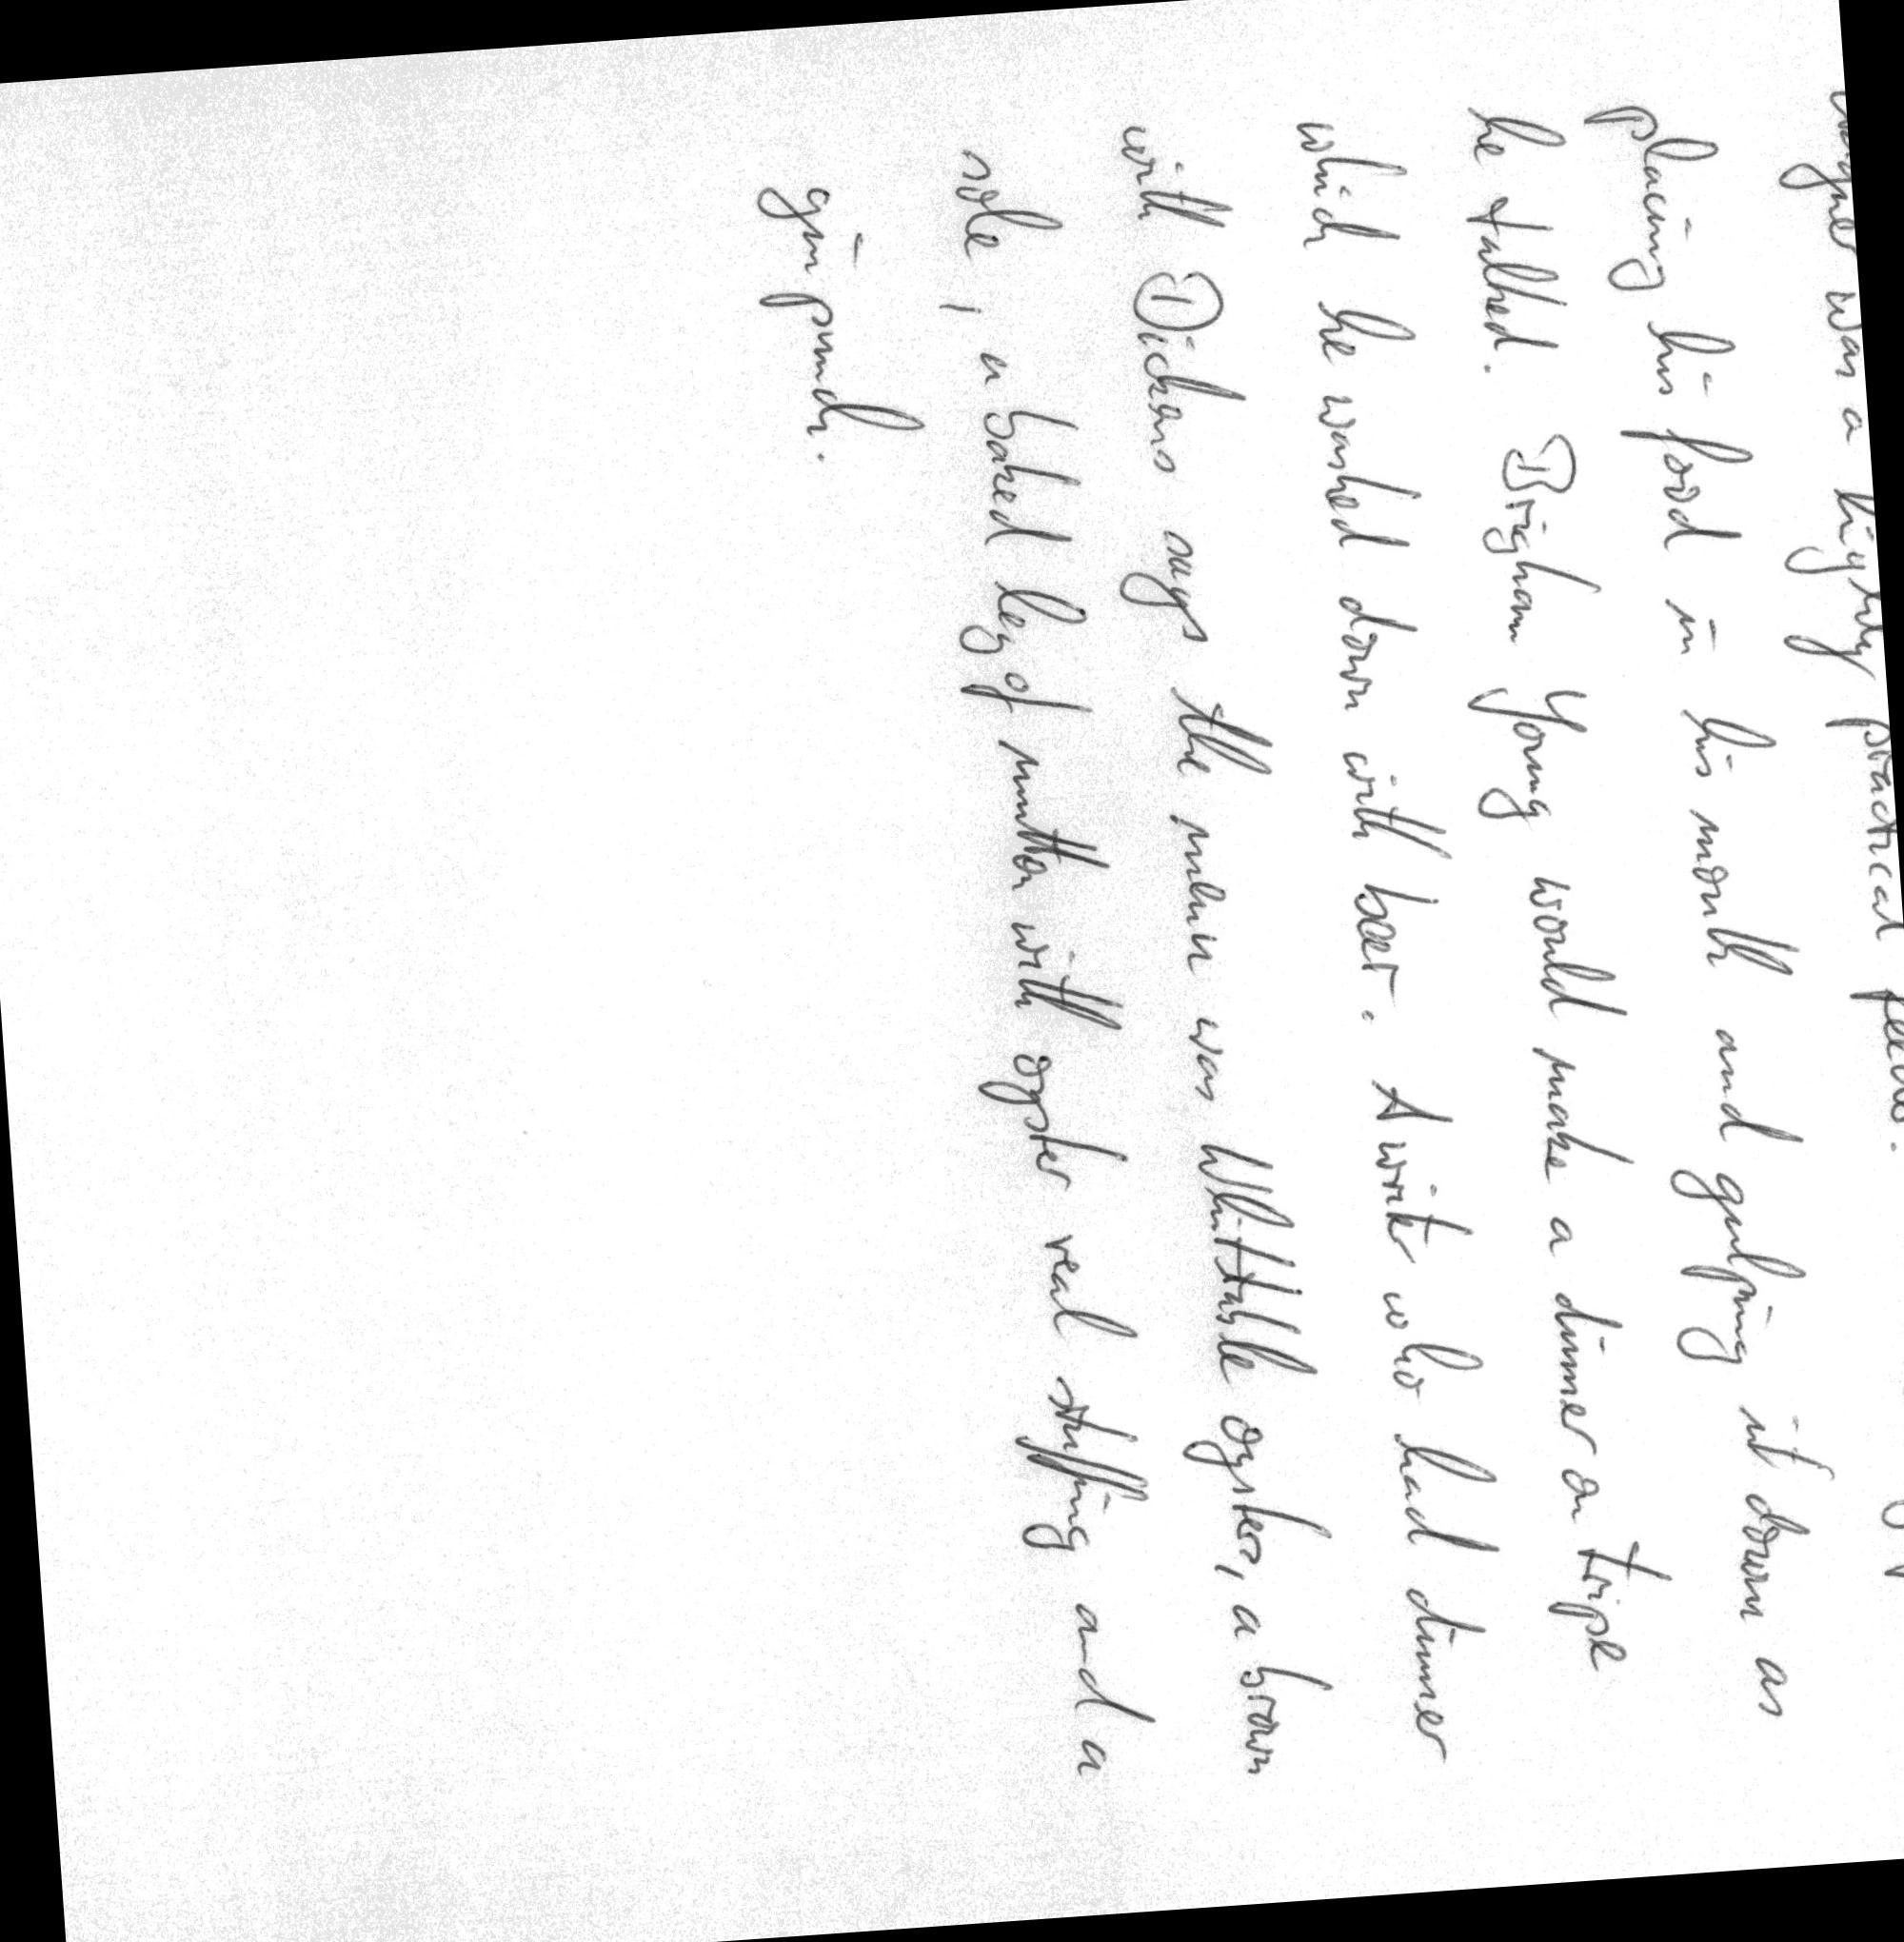 Wagner was a highly practical feeder.
placing his food in his mouth and gulping it down as
he talked. Brigham Young would make a dinner on tripe
which he washed down with beer. A writer who had dinner
with Dickens says the menu was Whitstable oysters, a brown
sole, a baked leg of mutton with oyster veal stuffing and a
gin punch.